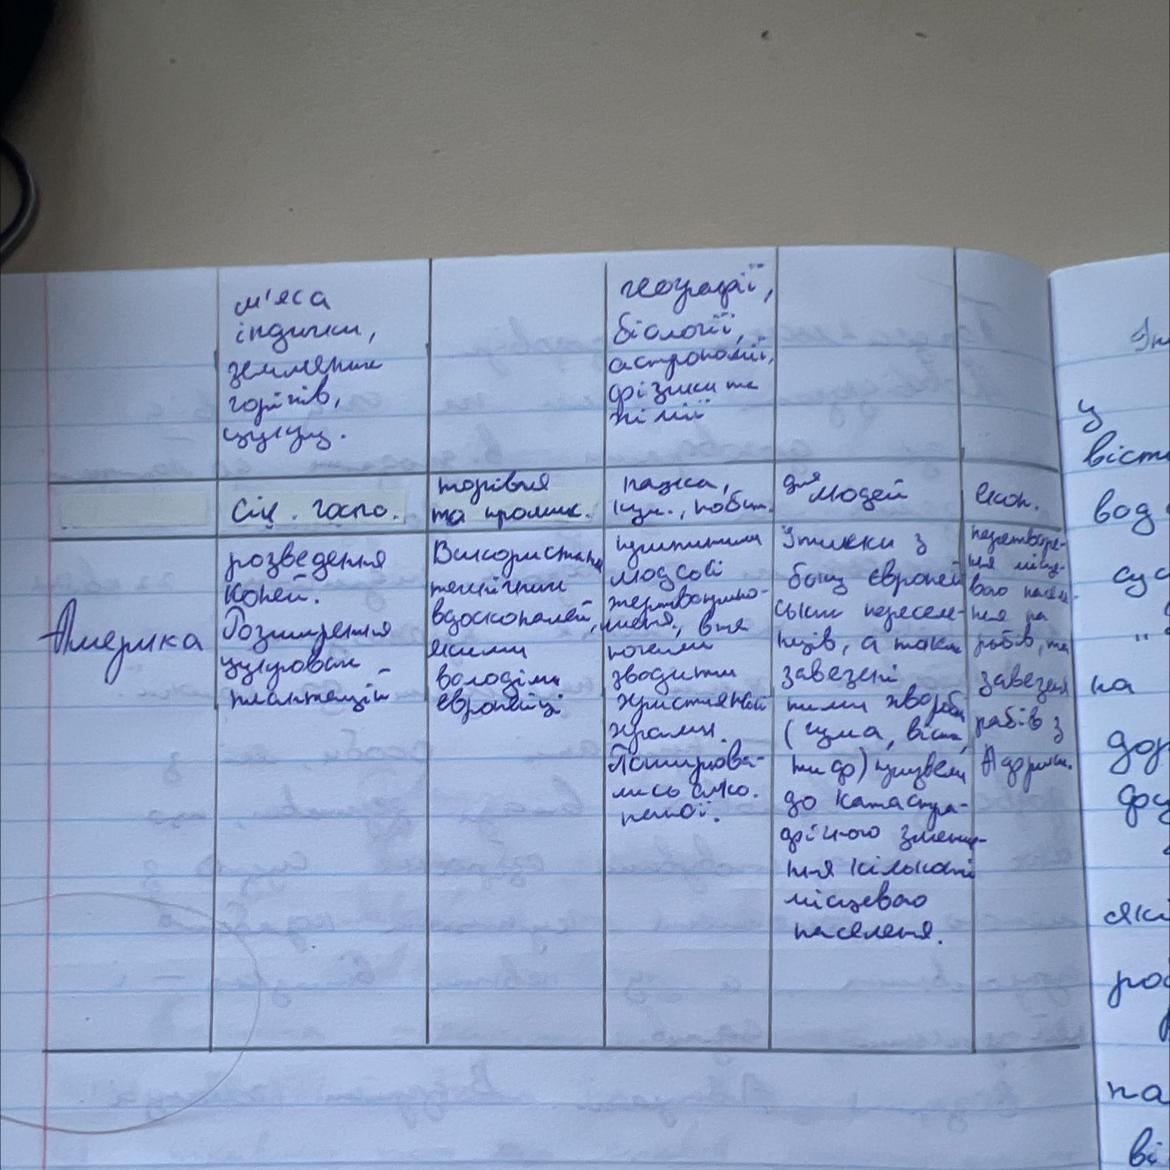 м'яса
індички,
земляних
горіхів,
цукру.
географії,
біології,
астрономії,
фізики та
хімії
сіл. госпо.
торівля
та промис.
наука,
кул., побут.
для людей
екон.
Америка
розведення
коней.
Розширення
цукрових
плантацій
Використання
технічних
вдосконалень,
якими
володіли
європейці
припинили
людські
жертвоприно-
шення, вже
почали
зводити
християнські
храми.
Поширюва-
лись євро.
мови.
Утиски з
боку європей-
ських пересел-
нців, а також
завезені
ними хвороби
(чума, віспа,
ти др) призвели
до катастро-
фічного зменше-
ння кількості
місцевого
населеня.
перетворе-
ння місце-
вого насел-
ння на
рабів, та
завезеня
рабів з
Африки.
У
віст
вод
сус
на
дор
дру
які
ро
на
ві